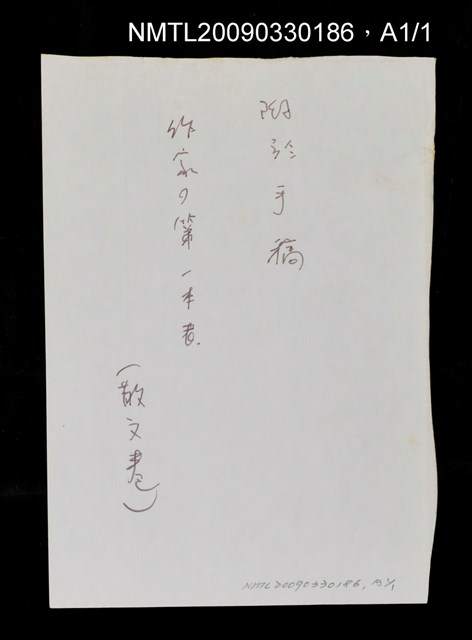 NMTL20090330186，A1/1
附於手稿
作家の第一本書
(散文卷)
NMTL20090330186, A1/1